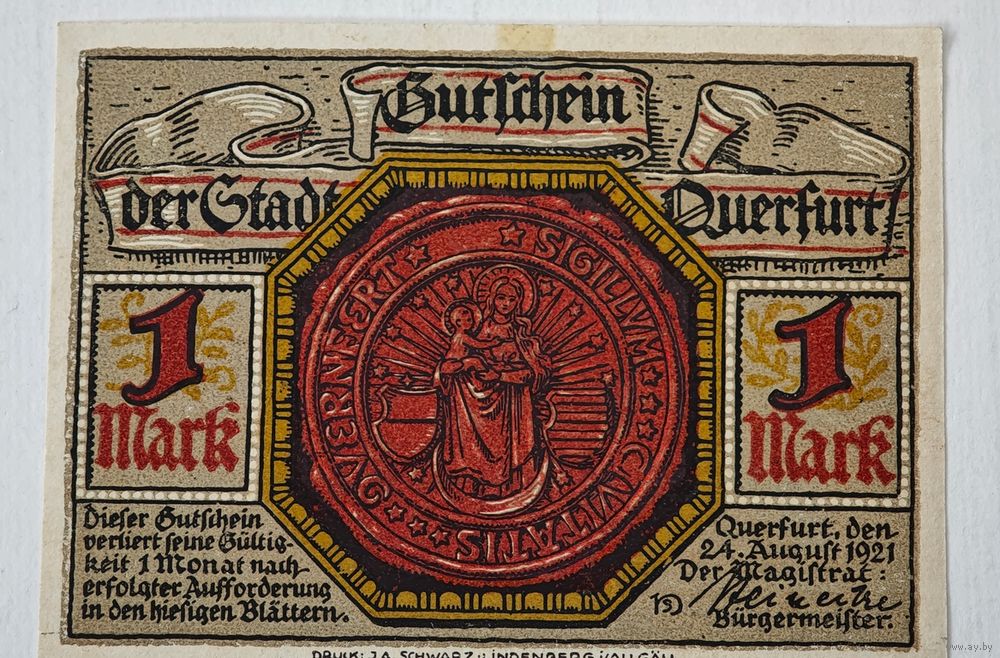 Gutschein
der Stadt Querfurt
★ SIGILLVM ★★★ CIVITATIS ★★★ QVERNFERT ★
1
Mark
1
Mark
Dieser Gutschein
verliert seine Gültig-
keit 1 Monat nach
erfolgter Aufforderung
in den hiesigen Blättern.
Querfurt, den
24. August 1921
Der Magistrat:
Bürgermeister.
DRUCK: J.A. SCHWARZ, LINDENBERG i/ALLGÄU
www.ay.by